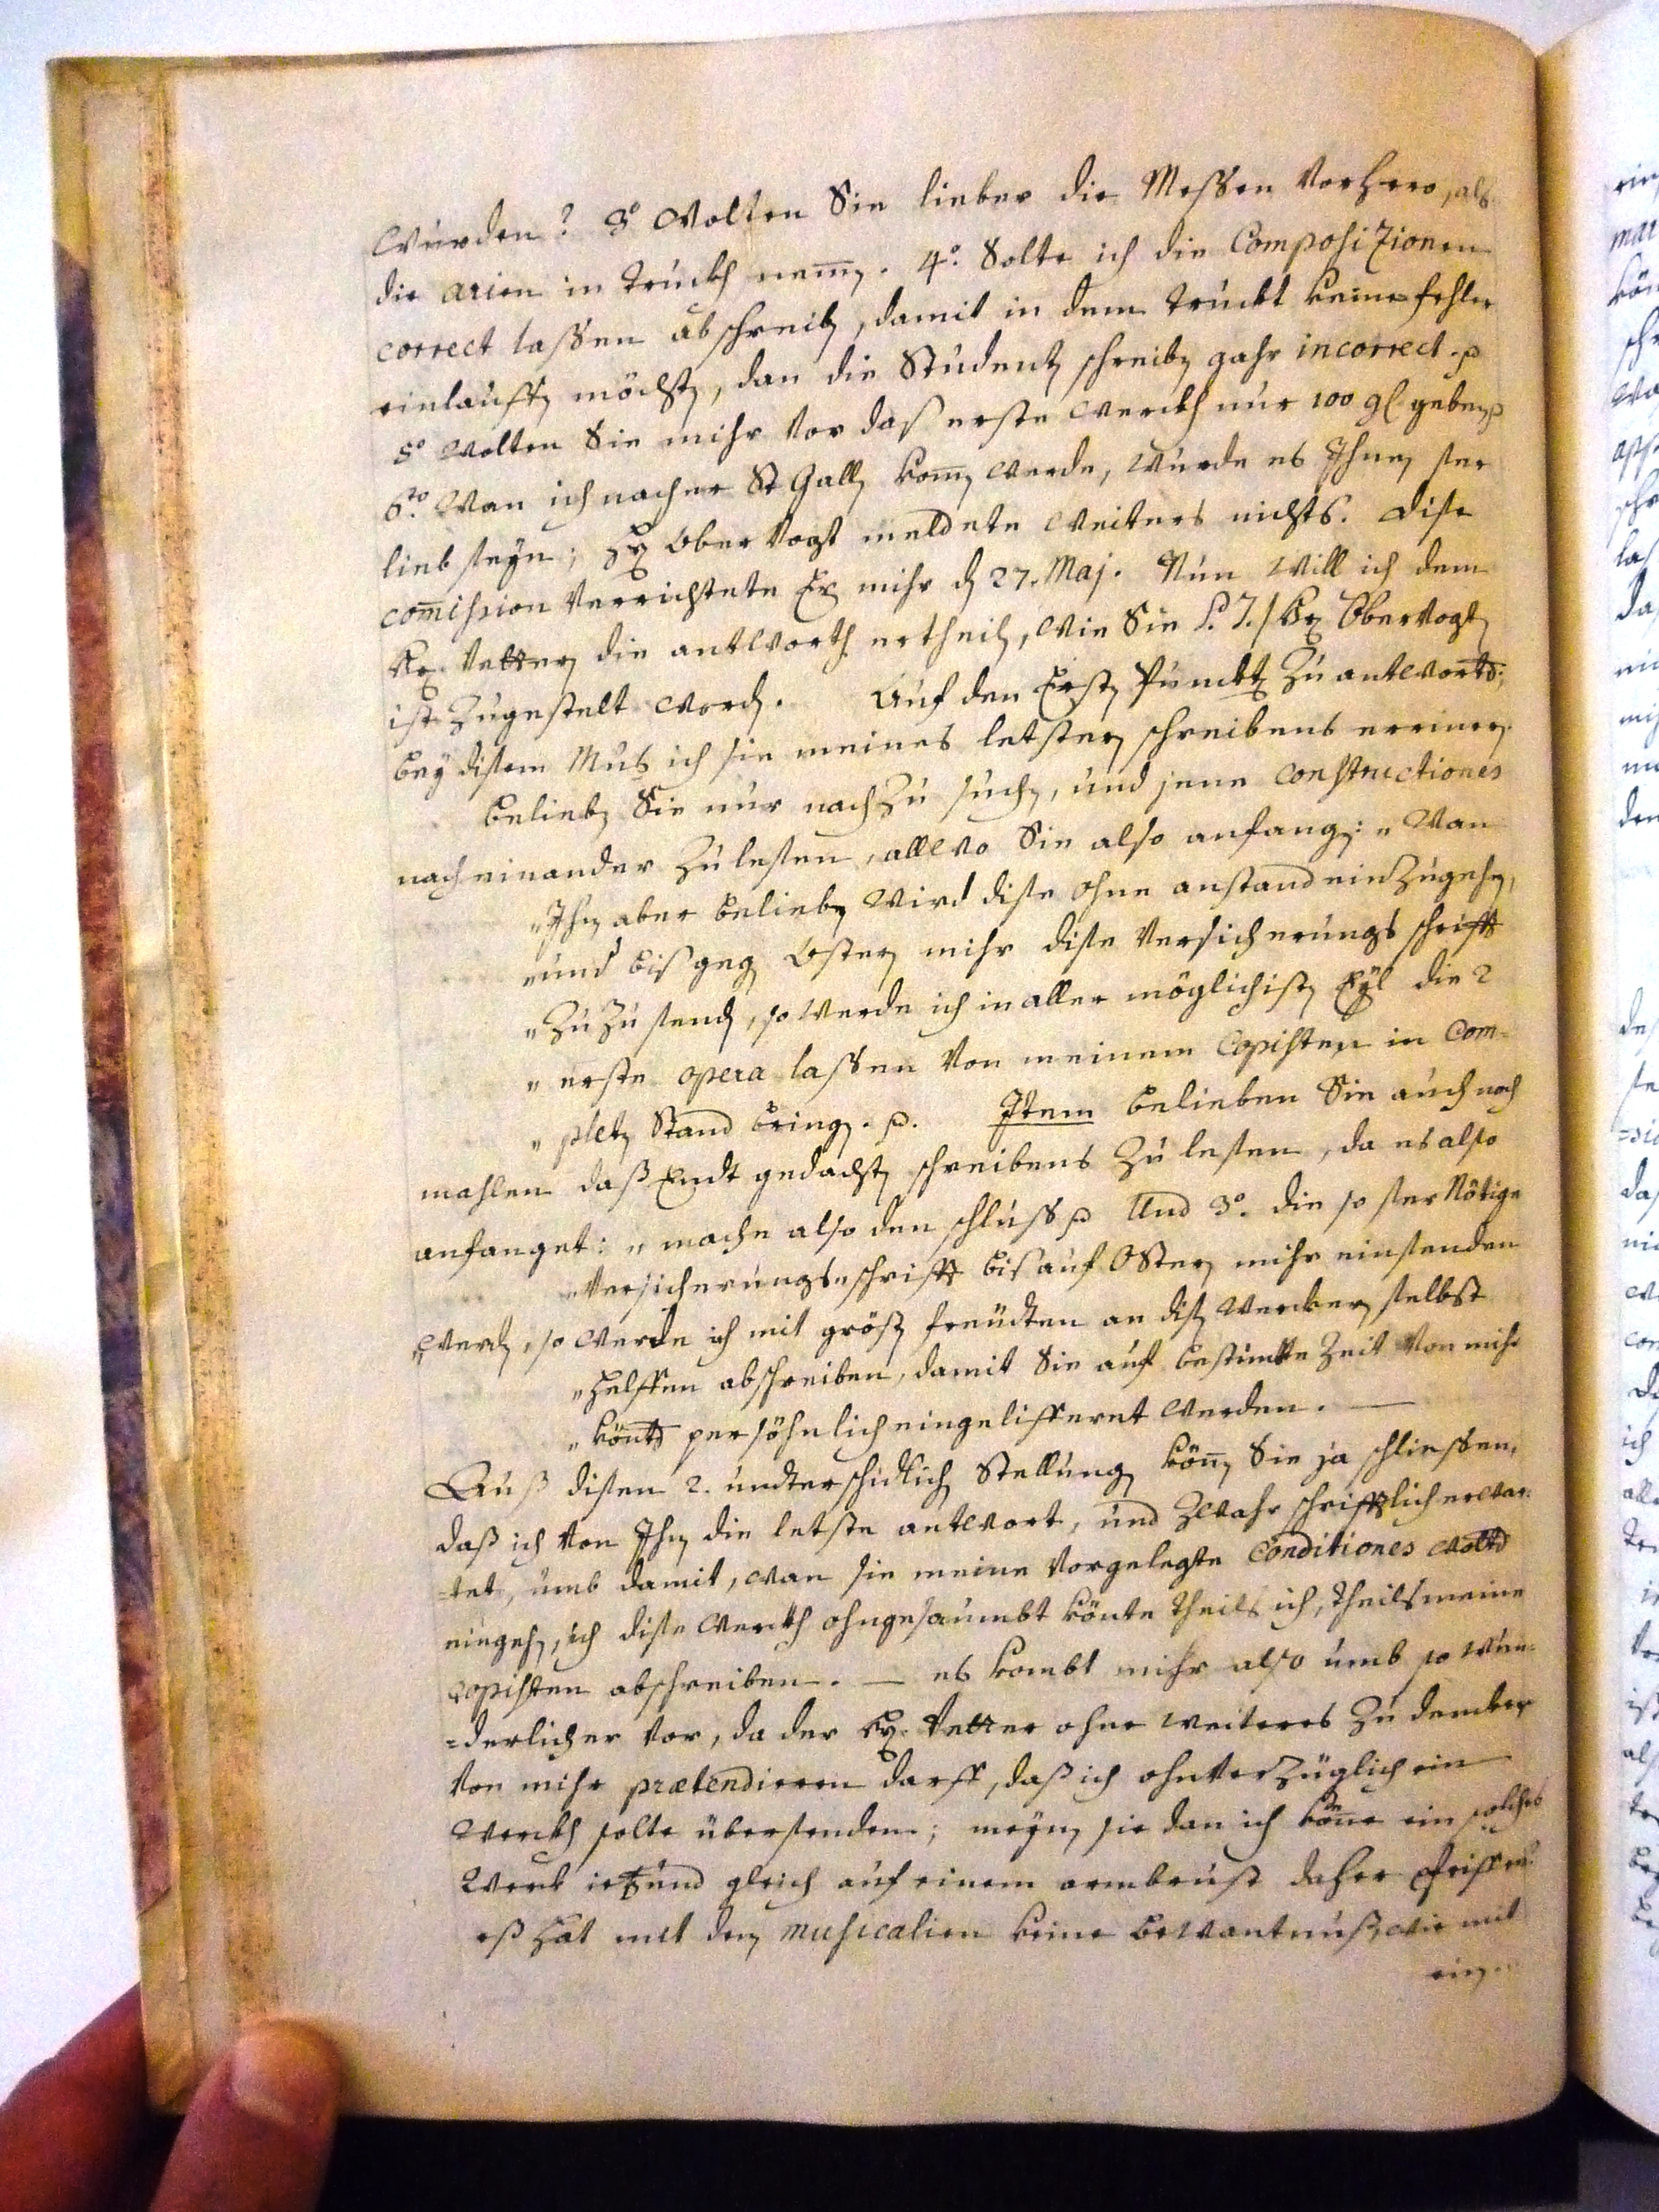 wurden? 3º Wolten Sie lieber die Messen vorhero, als
die arien in truckh nem̄en. 4º. Solte ich die Composizionen
correct lassen abschreiben, damit in dem truckt keine fehler
einlauffen möchten, dan die Studenten schreiben gahr incorrect. p
5º Wolten Sie mihr vor daß erste werckh nur 100 gl geben p
6to. Wan ich nacher St Gallen kom̄en werde, wurde es Ihnen ser
lieb seyn; Hr Obervogt meldete weiters nichts. dise
com̄ission verrichtete Er mihr den 27. Maj. Nun will ich dem
Hr. Vetteren die antworth ertheilen, wie Sie P. T. / Hr Obervogten
ist zugestelt worden. Auf den Ersten Punckten zu antworten;
bey disem Mus ich sie meines letsteren schreibens erineren.
belieben Sie nur nach zu suchen, und jene constructiones
nach einander zu lesen, allwo Sie also anfangen: „Wan
„Ihnen aber belieben wird dise ohne anstand einzugehen,
„und biß gegen Osteren mihr dise Versicherungs schrifft
„zuzusenden, so werde ich in aller möglichisten Eyl die 2
„erste opera lassen von meinem Copisten in com-
„pleten Stand bringen. p. Item belieben Sie auch noch
mahlen daß Endt gedachten schreibens zu lesen, da es also
anfanget: „mache also den schluss p Und 3º. die so ser Nötige
„Versicherungs schrifft biß auf Osteren mihr einsenden
„werden, so werde ich mit grösten freüdten an disen Werckeren selbst
„helffen abschreiben, damit Sie auf bestimte Zeit von mihr
„könten persöhnlich eingelifferet werden. —
Auß disen 2. undterschidlichen Stellungen können Sie ja schliessen,
daß ich von Ihnen die letste antwort, und zwahr schrifftlich erwar-
tet, umb damit, wan sie meine vorgelegte conditiones wolten
eingehen, ich dise Werckh ohngesaumbt könte theils ich, theils meine
copisten abschreiben. — es kombt mihr also umb so wun-
=derlicher vor, da der Hr. Vetter ohne weiteres zu dencken
von mihr prætendieren darff, daß ich ohnverzüglich ein
Werckh solte übersenden; meynen sie dan ich köne ein solches
Werck ietzund gleich auf einem armbrust daher
eß hat mit den musicalien keine bewantnuß, wie mit
ein